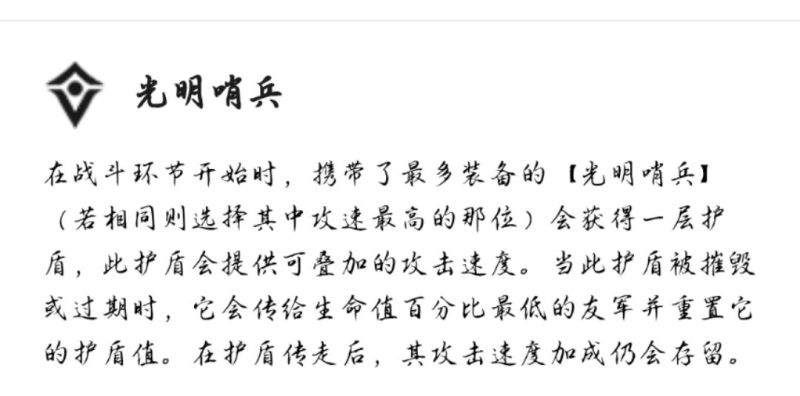 光明哨兵
在战斗环节开始时，携带了最多装备的【光明哨兵】
（若相同则选择其中攻速最高的那位）会获得一层护
盾，此护盾会提供可叠加的攻击速度。当此护盾被摧毁
或过期时，它会传给生命值百分比最低的友军并重置它
的护盾值。在护盾传走后，其攻击速度加成仍会存留。